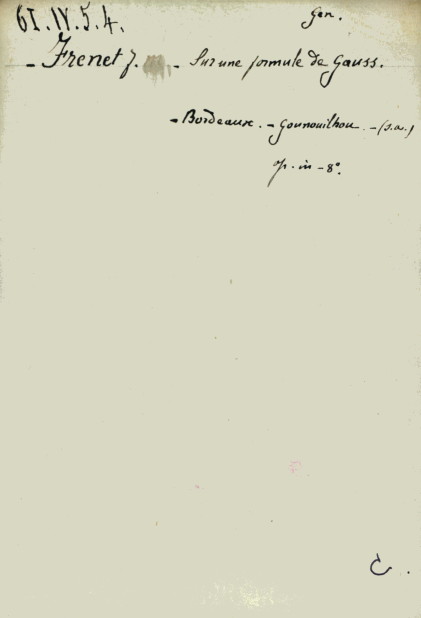 61.IV.5.4.
Gen.
- Frenet J. - Sur une formule de Gauss.
- Bordeaux. - Gounouilhou. - (s.a.)
in - 8°.
C.